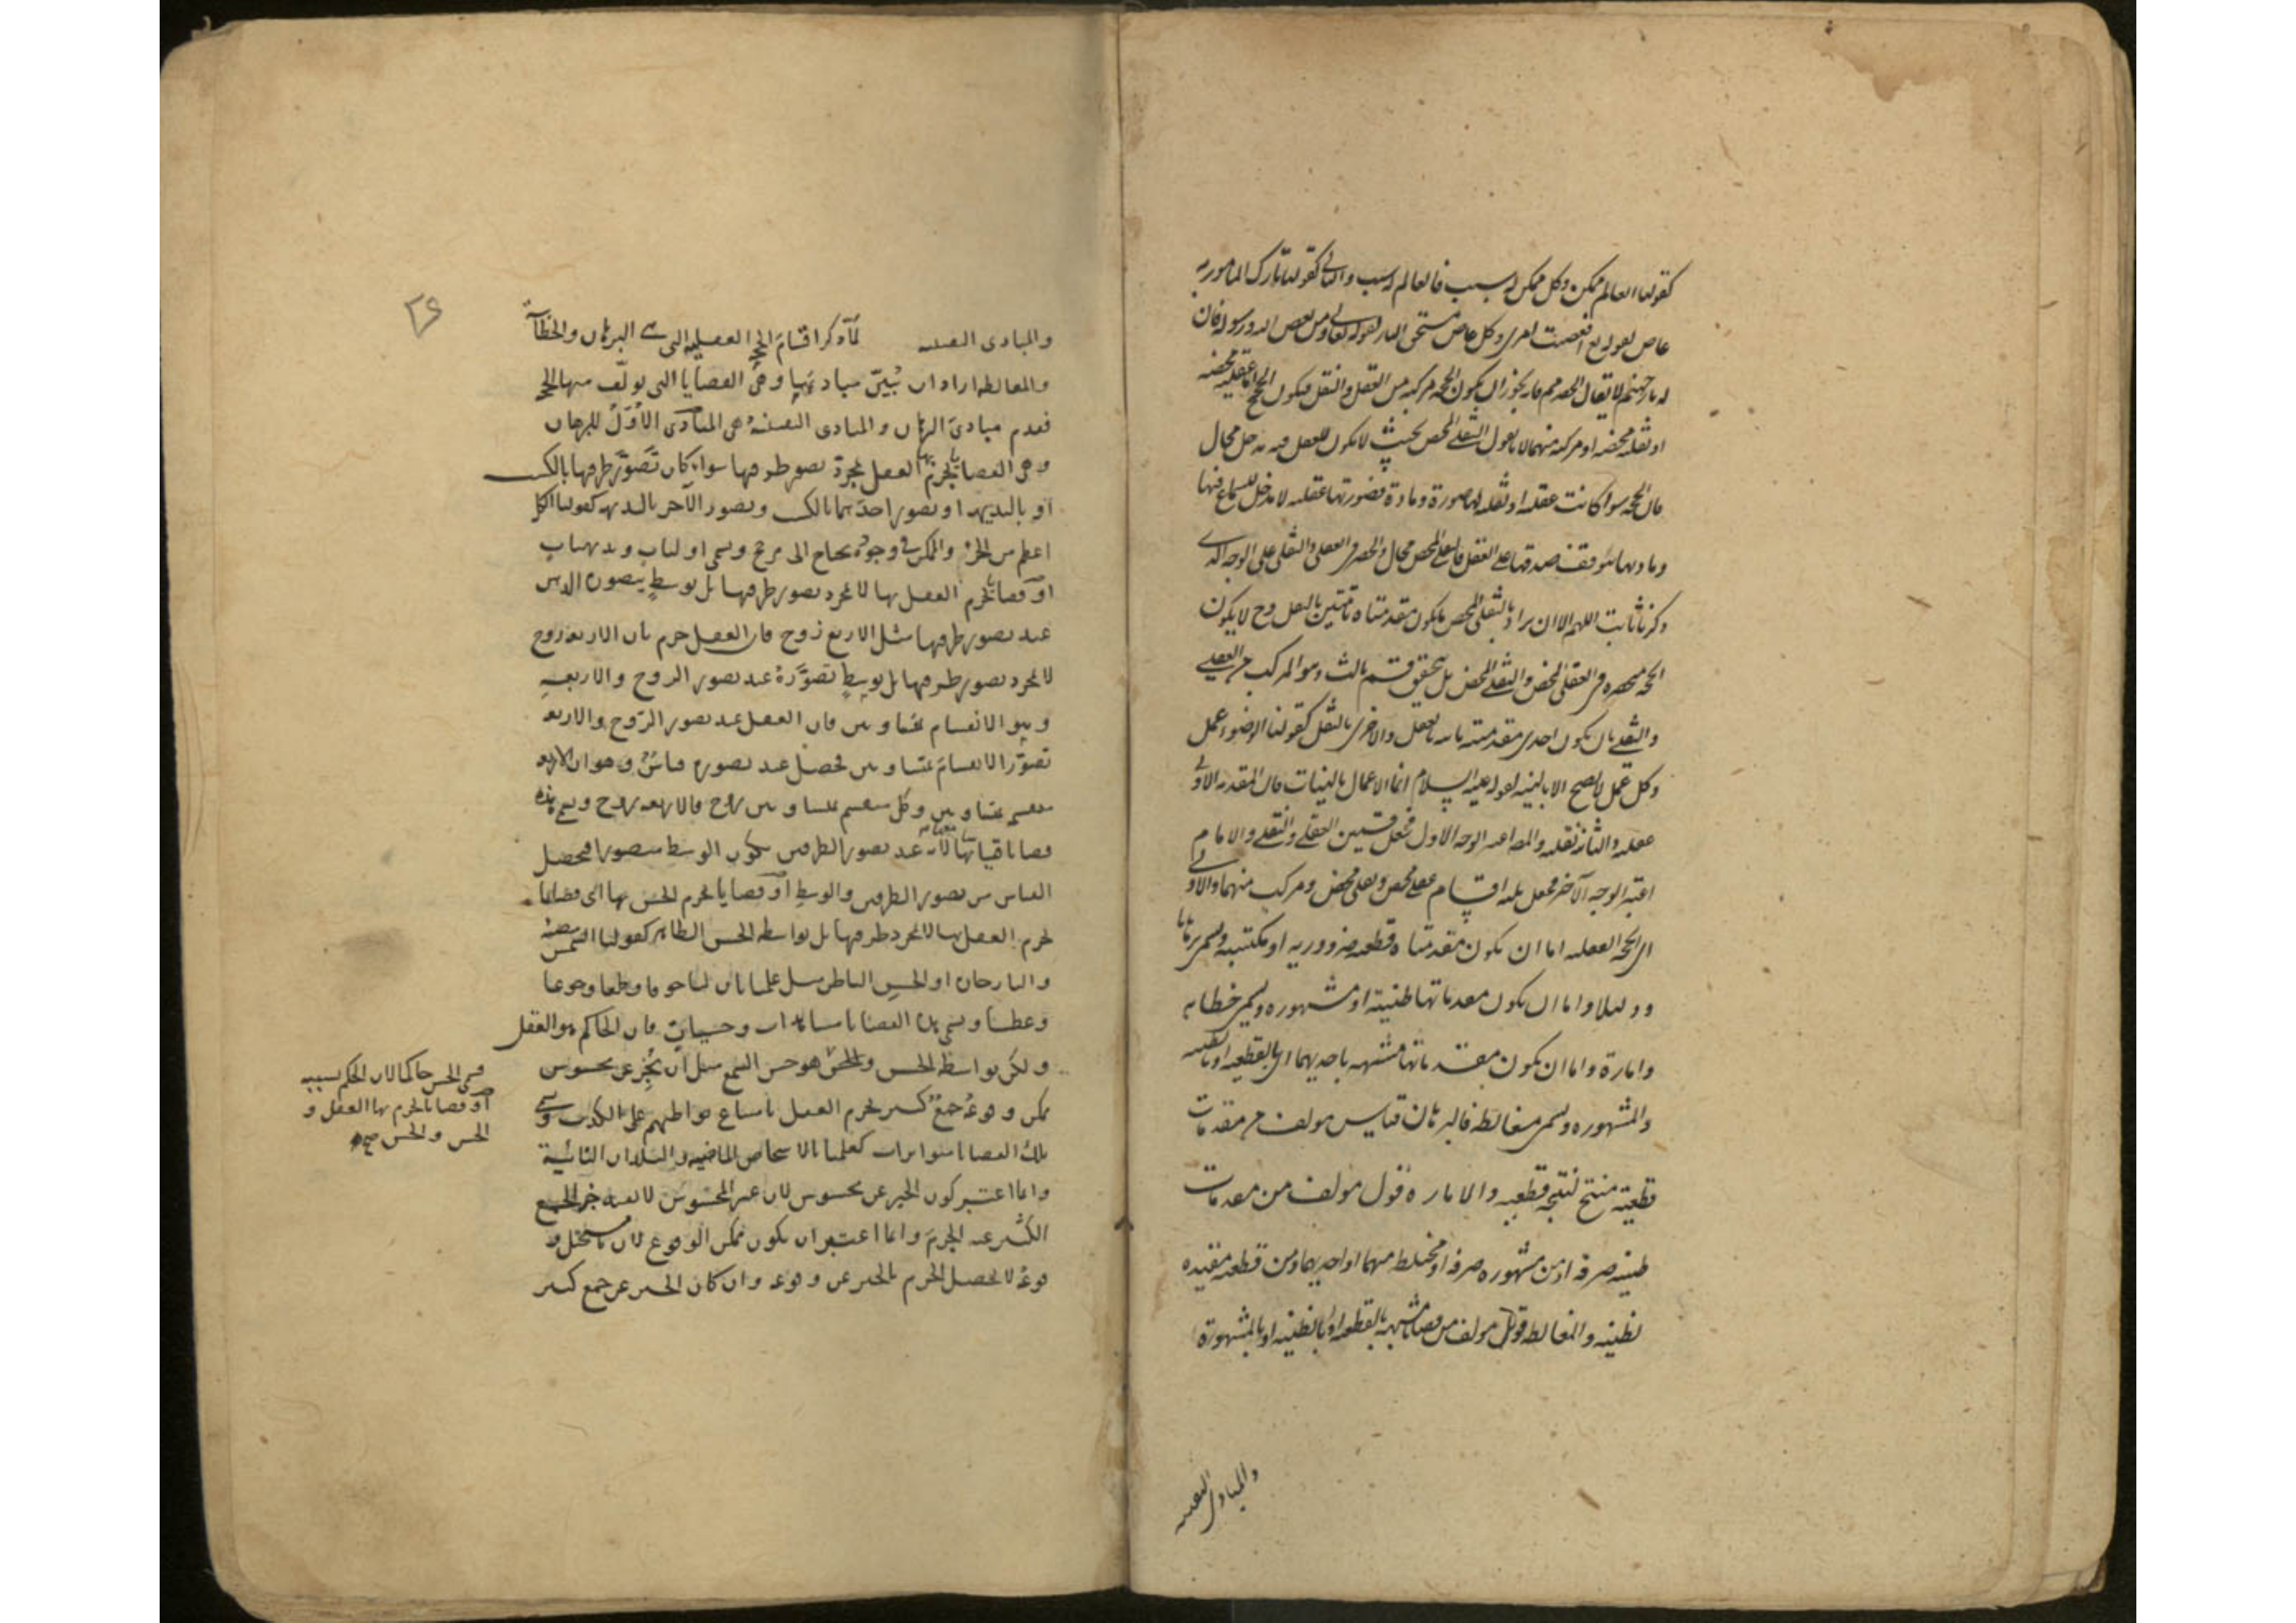 كقولنا العالم ممكن وكل ممكن له سبب فالعالم له سبب والثاني كقولنا تارك المأمور به
عاص لقوله تع افعصيت امري وكل عاص مستحق النار لقوله تعالى ومن يعص الله ورسوله فان
له نار جهنم لا يقال الحصر مم فانه يجوز ان يكون الحجة مركبه من العقل والنقل فيكون الحجج اما عقليه محضه
او نقليه محضه او مركبه منهما لانا نقول النقلي المحض بحيث لا يكون للعقل فيه مدخل محال
فان الحجة سوا كانت عقليه او نقليه لها صورة ومادة فصورتها عقليه لا مدخل للسماع فيها
ومادتها يتوقف صدقها على العقل فالنقلي المحض محال والحصر في العقلي والنقلي على الوجه الذي
ذكرنا ثابت اللهم الا ان يراد بالنقلي المحض ما يكون مقدمتاه ثابتتين بالنقل وح لا يكون
الحجة منحصره في العقلي المحض والنقلي المحض بل يتحقق قسم ثالث وهو المركب من العقلي
والنقلي بان يكون احدى مقدمتيه ثابته بالعقل والاخرى بالنقل كقولنا الوضوء عمل
وكل عمل لا يصح الا بالنيه لقوله عليه السلام انما الاعمال بالنيات فان المقدمه الاولى
عقليه والثانيه نقليه والمص اعتبر الوجه الاول فجعل قسمين العقلي والنقلي والامام
اعتبر الوجه الآخر فجعل ثلثه اقسام عقلي محض ونقلي محض ومركب منهما والاولى
اي الحجة العقليه اما ان يكون مقدمتاه قطعيه ضروريه او مكتسبه ويسمى برهانا
ودليلا واما ان يكون مقدماتها ظنية او مشهوره ويسمى خطابه
وامارة واما ان يكون مقدماتها مشبهه باحديهما اي بالقطعيه او بالظنيه
والمشهوره ويسمى مغالطه فالبرهان قياس مولف من مقدمات
قطعية منتج لنتيجه قطعيه والاماره قول مولف من مقدمات
ظنيه صرفه او من مشهوره صرفه او مختلط منهما او احديهما ومن قطعيه مفيده
لظنيه والمغالطه قول مولف من قضايا مشبهه بالقطعيه او بالظنيه او بالمشهورة
والمبادى اليقينيه
٢٦
والمبادى اليقينيه لما ذكر اقسام الحجج العقليه التي هي البرهان والخطابة
والمغالطه اراد ان يبين مباديها وهي القضايا التي يولف منها الحجج
فقدم مبادئ البرهان والمبادى اليقينيه هي المبادى الأول للبرهان
وهي القضايا يجزم بها العقل بمجرد تصور طرفيها سواء كان تصور طرفيها بالكسب
او بالبديهه او تصور احدهما بالكسب وتصور الآخر بالبديهه كقولنا الكل
اعظم من الجزء والممكن في وجوده يحتاج الى مرجح ويسمى اوليات وبديهيات
او قضايا يجزم العقل بها لا بمجرد تصور طرفيها بل بوسط يتصوره الذهن
عند تصور طرفيها مثل الاربع زوج فان العقل جزم بان الاربعه زوج
لا بمجرد تصور طرفيها بل بوسط تصوره عند تصور الزوج والاربعه
وهو الانقسام بمتساويين فان العقل عند تصور الزوج والاربعه
تصور الانقسام بمتساويين فحصل عند تصوره قياس وهو ان الاربعه
منقسم بمتساويين وكل منقسم بمتساويين زوج فالاربعه زوج ويسمى هذه
قضايا قياساتها معها لان عند تصور الطرفين يكون الوسط متصورا فيحصل
القياس من تصور الطرفين والوسط او قضايا يجزم الحس بها اي قضايا
يجزم العقل بها لا بمجرد طرفيها بل بواسطه الحس الظاهر كقولنا الشمس مضيئه
والنار حاره او الحس الباطن مثل علمنا بان لنا خوفا وطمعا وجوعا
وعطشا ويسمى هذه القضايا مشاهدات وحسيات فان الحاكم هو العقل
ولكن بواسطة الحس والحس هو حس السمع مثل ان يخبر عن محسوس
ممكن وقوعه جمع كثير يجزم العقل بامتناع تواطئهم على الكذب ويسمى
تلك القضايا متواترات كعلمنا بالاشخاص الماضيه والبلدان النائية
وانما اعتبر كون الخبر عن محسوس لان غير المحسوس لا يفيد خبر الجمع
الكثير عنه الجزم وانما اعتبر ان يكون ممكن الوقوع لان ما يستحيل و
قوعه لا يحصل الجزم بالخبر عن وقوعه وان كان الخبر عن جمع كثير
فسمى الحس حاكما لان الحكم بسببه
او قضايا يجزم بها العقل و
الحس والحس صح